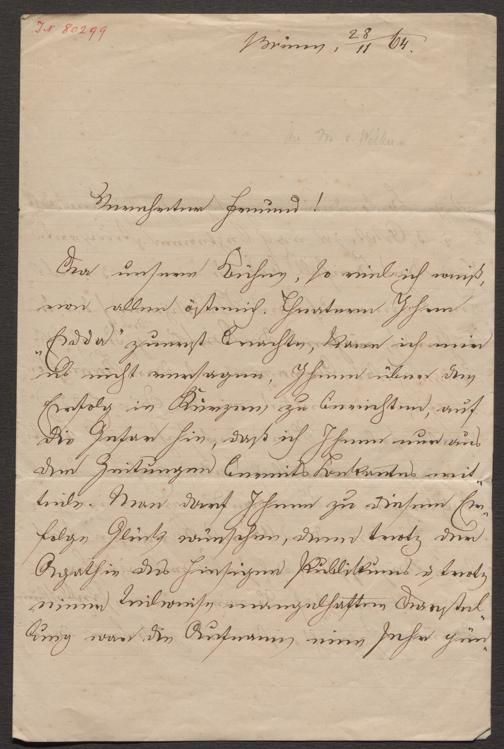 I.N. 80299
Brünn, 28/11 64.
Verehrter Freund!
Da unsere Bühne, so viel ich weiß,
von allen österreich. Theatern Ihre
„Edda" zuerst brachte, kann ich mir
es nicht versagen, Ihnen über den
Erfolg in Kürze zu berichten, auf
die Gefar hin, daß ich Ihnen nur aus
den Zeitungen bereits Bekanntes mit-
teile. Man darf Ihnen zu diesem Er-
folge Glück wünschen, denn trotz der
Apathie des hiesigen Publikums & trotz
einer teilweise mangelhaften Darstel-
lung war die Aufname eine sehr gün-